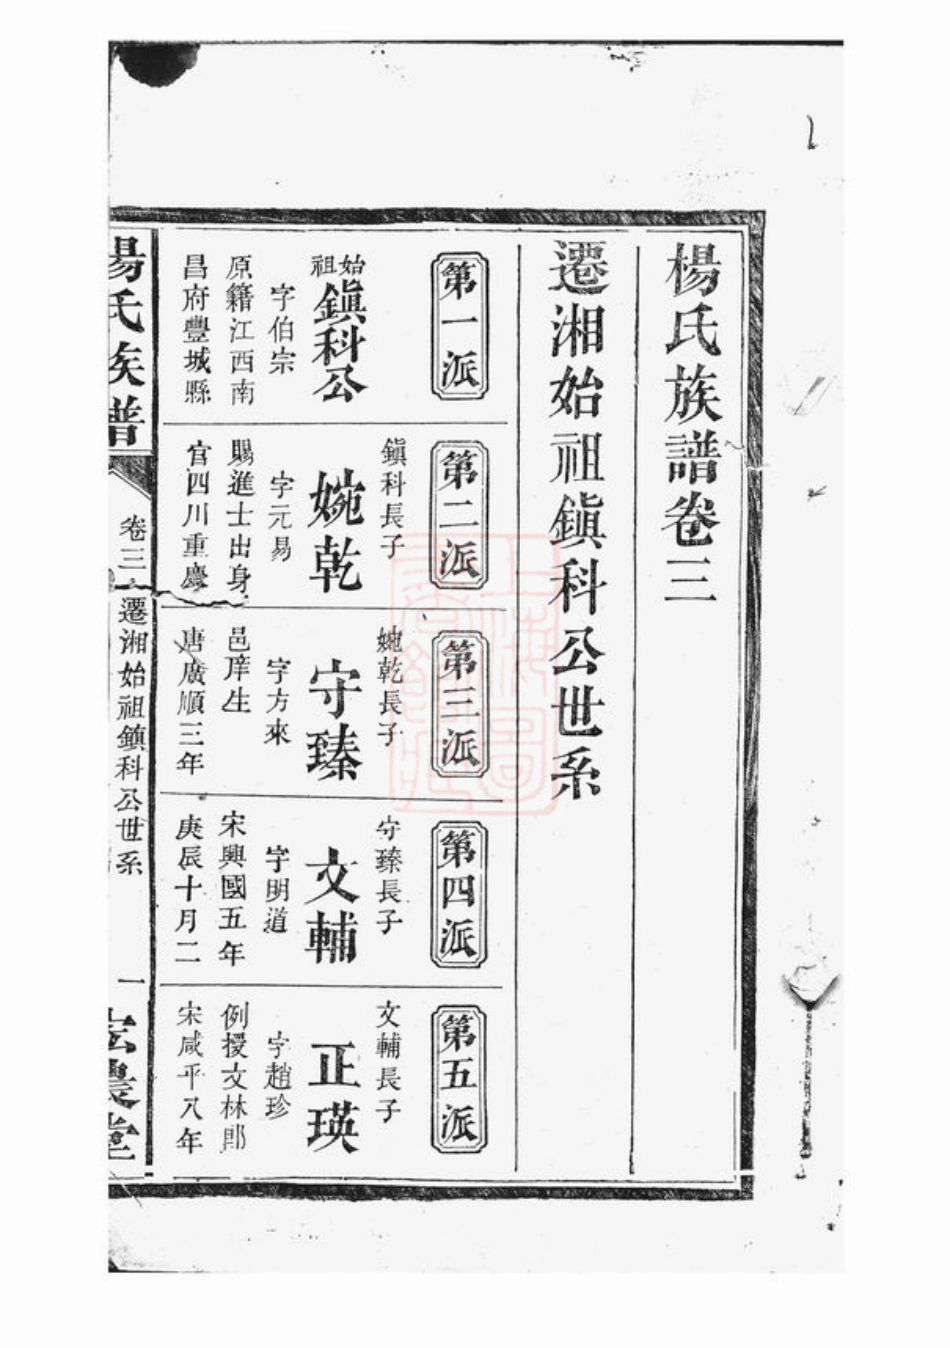 楊氏族譜卷三
遷湘始祖鎭科公世系
第一派
始祖鎭科公
字伯宗
原籍江西南
昌府豐城縣
第二派
鎭科長子
婉乾
字元易
賜進士出身
官四川重慶
第三派
婉乾長子
守臻
字方來
邑庠生
唐廣順三年
第四派
守臻長子
文輔
字明道
宋興國五年
庚辰十月二
第五派
文輔長子
正瑛
字趙珍
例授文林郎
宋咸平八年
楊氏族譜
卷三
遷湘始祖鎭科公世系
一
宏農堂